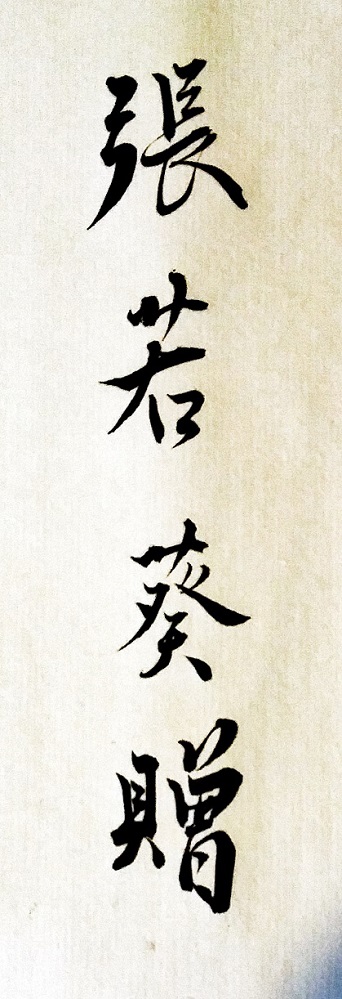 張若葵贈